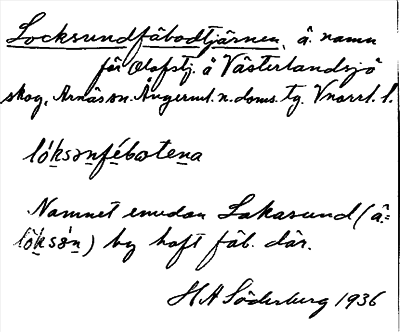 Locksundfäbodtjärnen, ä. namn
för Olofstj. å Västerlandsjö
skog, Arnäs sn. Ångerml. n. doms. tg. Vnorrl. l.
lóksənfébɷtena
Namnet emedan Lakasund (å=
lòksə́n) by haft fäb. där.
H A Söderberg 1936